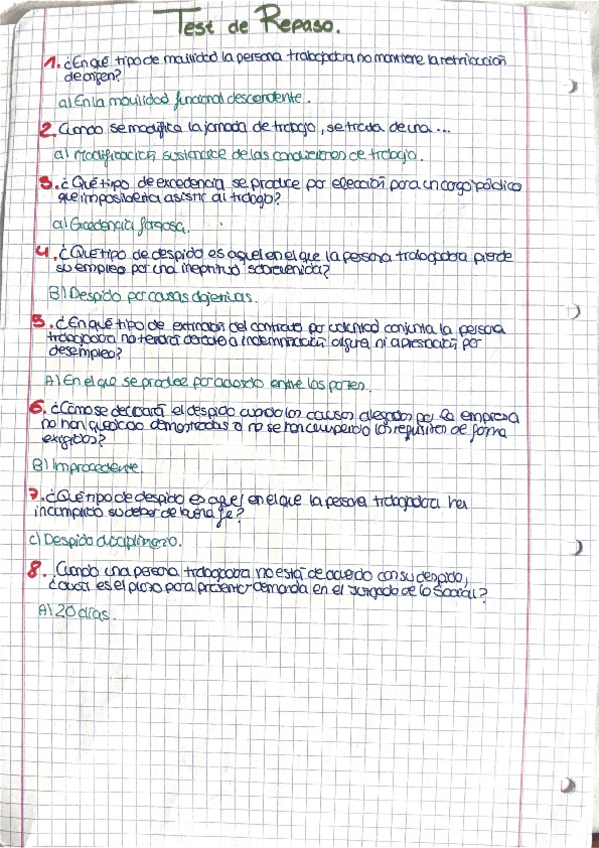 Test de Repaso.
1. ¿En qué tipo de movilidad la persona trabajadora no mantiene la retribución
de origen?
a) En la movilidad funcional descendente.
2. Cuando se modifica la jornada de trabajo, se trata de una...
a) Modificación sustancial de las condiciones de trabajo.
3. ¿Qué tipo de excedencia se produce por elección para un cargo público
que imposibilita asistir al trabajo?
a) Excedencia forzosa.
4. ¿Qué tipo de despido es aquel en el que la persona trabajadora pierde
su empleo por una ineptitud sobrevenida?
B) Despido por causas objetivas.
5. ¿En qué tipo de extinción del contrato por voluntad conjunta la persona
trabajadora no tendrá derecho a indemnización alguna, ni a prestación por
desempleo?
A) En el que se produce por acuerdo entre las partes.
6. ¿Cómo se declarará el despido cuando las causas alegadas por la empresa
no han quedado demostradas o no se han cumplido los requisitos de forma
exigidos?
B) Improcedente.
7. ¿Qué tipo de despido es aquel en el que la persona trabajadora ha
incumplido su deber de buena fe?
c) Despido disciplinario.
8. Cuando una persona trabajadora no está de acuerdo con su despido,
¿cuál es el plazo para presentar demanda en el Juzgado de lo Social?
A) 20 días.